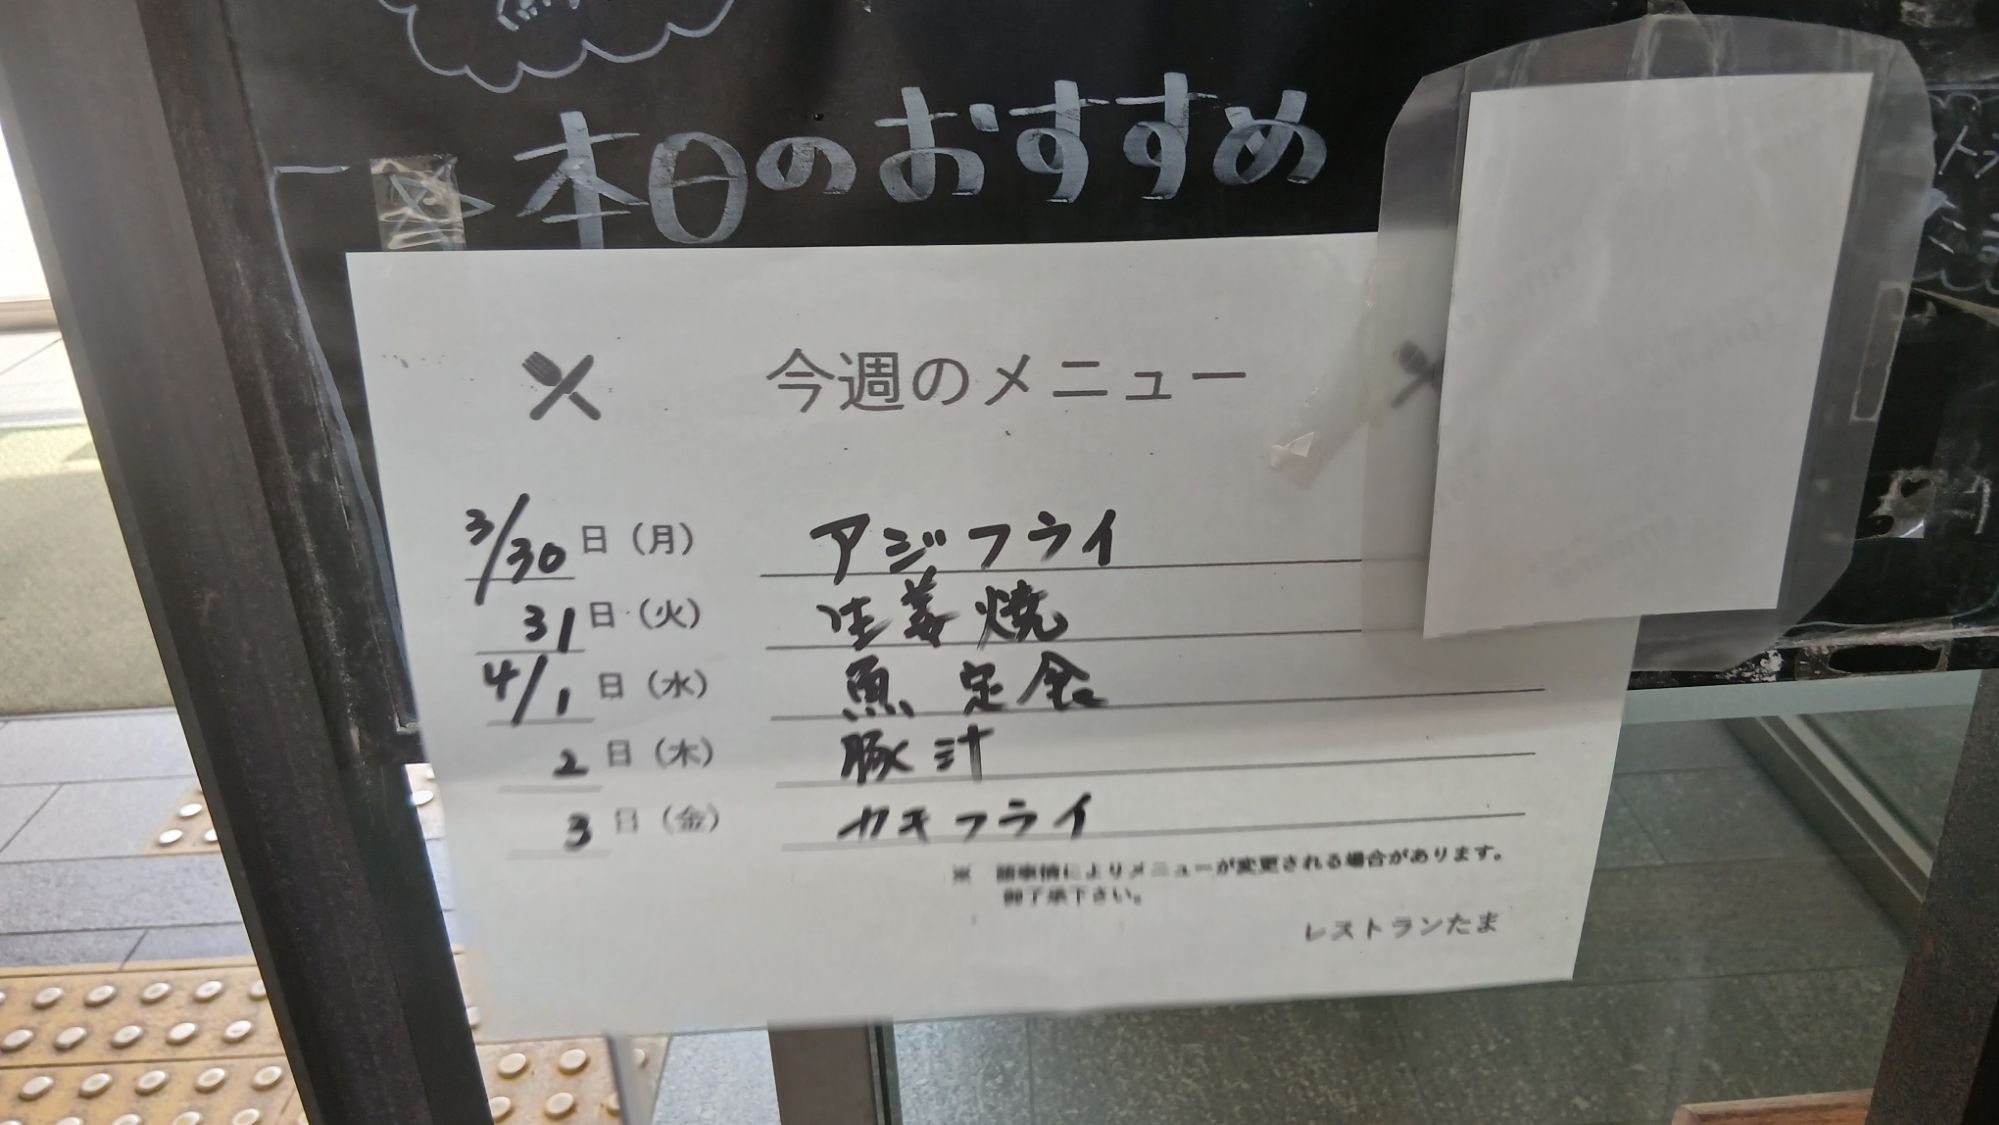 本日のおすすめ
今週のメニュー
3/30日（月） アジフライ
31日（火） 生姜焼
4/1日（水） 魚定食
2日（木） 豚汁
3日（金） カキフライ
※ 諸事情によりメニューが変更される場合があります。
御了承下さい。
レストランたま